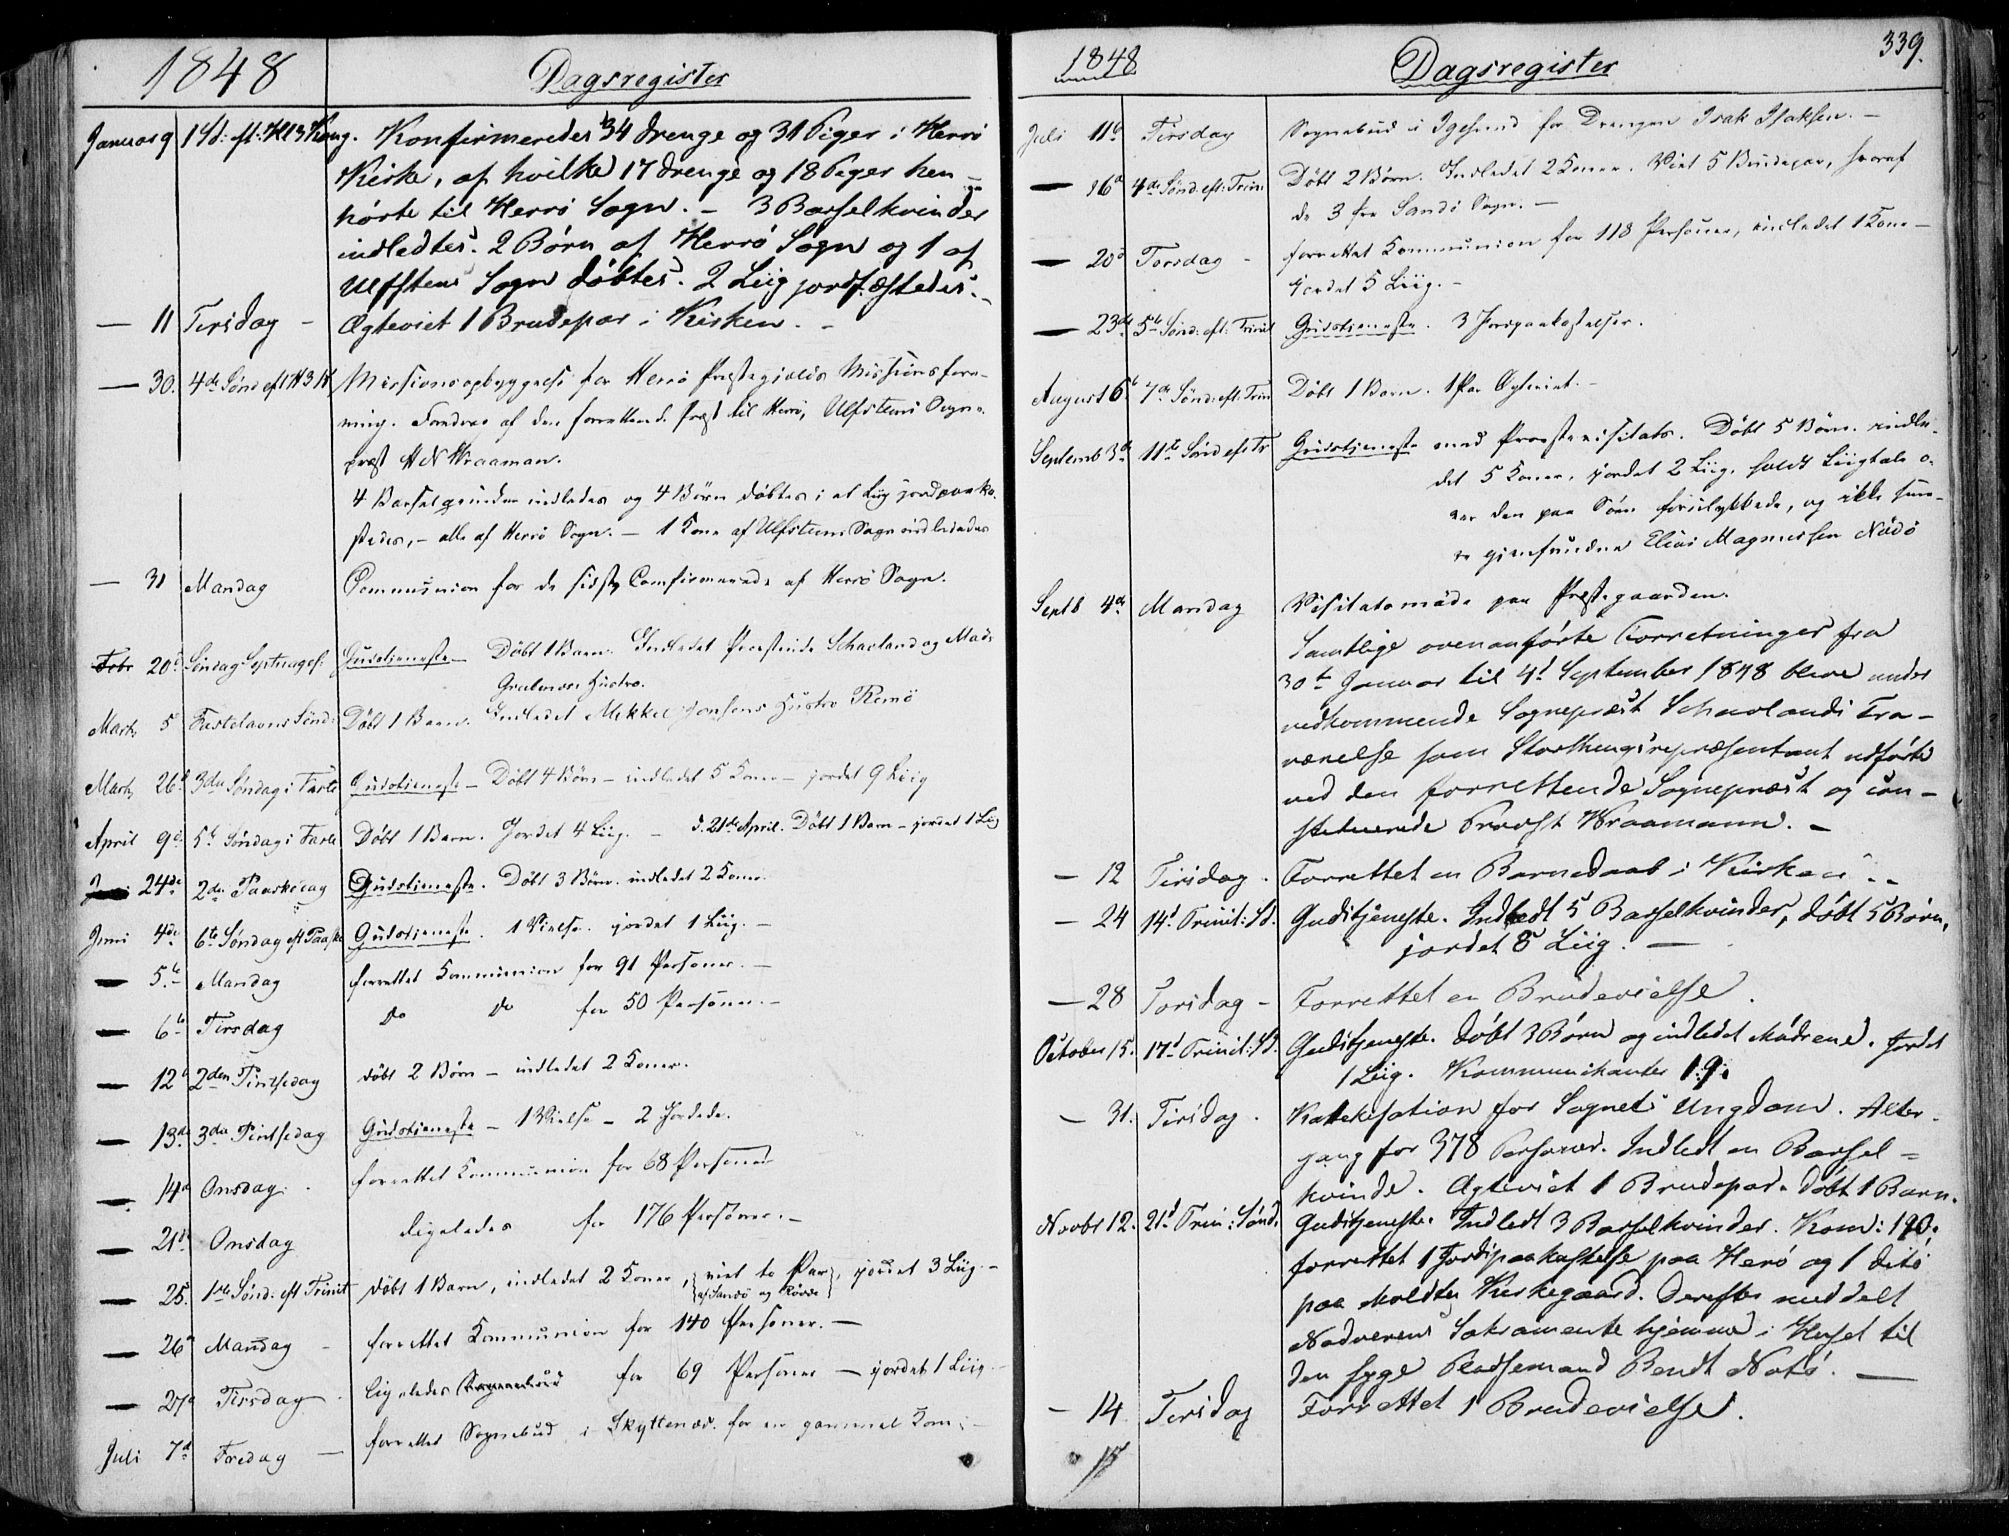 1848 Dagsregister
Januar 9 1 Sd: eft: H 3 Kong. Konfirmeredes 34 Drenge og 31 Piger i Herrö
Kirke, af hvilke 17 Drenge og 18 Piger hen-
hörte til Herrö Sogn. – 3 Barselkvinder
indledtes. 2 Börn af Herrö Sogn og 1 af
Ulfstens Sogn döbtes. 2 Liig jordfæstedes. –
— 11 Tirsdag – Ægteviet 1 Brudepar i Kirken. –
— 30. 4de Sönd eft H 3 K Missionsopbyggelse for Herrö Præstegjelds Missionsfore-
ning. Foredrag af den forrettende Præst til Herrö, Ulfsteens Sogne-
præst H N Wraaman.
4 Barselqvinder indledes og 4 Börn döbtes; et Liig jordpaaka-
stedes, – alle af Herrö Sogn. – 1 Kone af Ulfsteens Sogn indlededes
— 31 Mandag Communion for de sidst Confirmerede af Herrö Sogn.
Febr 20d Söndag Septuages: Gudstieneste – Döbt 1 Barn. Indledet Præstinde Schavland og Mads
Hustro.
Marts 5 Fastelavns Sönd: Döbt 1 Barn. Indledet Mikkel Jonsens Hustro Remö
Marts 26d 3die Söndag i Faste Gudstieneste – Döbt 4 Börn – indledet 5 Koner – jordet 9 Liig
April 9d 5te Söndag i Faste Döbt 1 Barn. Jordet 4 Liig. – d. 21de April. Döbt 1 Barn – jordet 1 Liig
24de 2den Paaskedag Gudstieneste. Döbt 3 Börn. indledet 2 Koner.
Juni 4de 6te Söndag eft Paaske Gudstieneste. 1 Vielse. jordet 1 Liig. –
— 5te Mandag forrettet Kommunion for 91 Personer. –
— 6te Tirsdag do do for 50 Personer. –
— 12te 2den Pintsedag döbt 2 Börn – indledet 2 Koner.
— 13de 3die Pintsedag Gudstieneste – 1 Vielse – 2 Jordede.
— 14d Onsdag. forrettet Communion for 68 Personer
— 21de Onsdag ligeledes for 176 Personer. –
— 25. 1ste Sönd: eft Trinit döbt 1 Barn, indledet 2 Koner, viet to Par, jordet 3 Liig. –
af Sandö og Rövde
— 26d Mandag – forrettet Kommunion for 140 Personer. –
— 27d Tirsdag ligeledes for 69 Personer – jordet 1 Liig.
Juli 7d Fredag — forrettet Sognebud i Skyttenæs for en gammel Kone –
1848 Dagsregister 339.
Juli 11d Tirsdag Sognebud i Igesund for Drengen Isak Isaksen. –
— 16d 4de Sönd: eft: Trin: Döbt 2 Börn. Indledet 2 Koner. Viet 5 Brudepar, hvoraf
de 3 fra Sandö Sogn. –
— 20d Torsdag – forrettet Kommunion for 118 Personer, indledet 1 Kone –
jordet 5 Liig. –
— 23de 5te Sönd: eft: Trinit Gudstieneste. 3 Jordpaakastelser.
August 6te 7de Sönd: eft: Trin Döbt 1 Barn. 1 Par Ægteviet. –
Septemb 3de 11te Sönd eft Tr Gudstieneste med Provstevisitats. Döbt 5 Börn. indle-
det 5 Koner, jordet 2 Liig, holdt Liigtale o-
ver den paa Söen forulykkede, og ikke
gjenfundne Elias Magnussen Nödö
Septb 4de Mandag Visitatsmöde paa Præstegaarden.
Samtlige ovenanförte Forretninger fra
30te Januar til 4d September 1848 bleve under
vedkommende Sognepræst Schavlands Fra-
værelse som Storthingsrepræsentant udförte
ved den forrettende Sognepræst og con-
stituerede Provst Wraamann. –
— 12 Tirsdag. Forrettet en Barnedaab i Kirken. –
— 24 14d Trinit: Sd. Gudstjeneste. Indledt 5 Barselkvinder, döbt 5 Börn,
jordet 8 Liig. —
— 28 Torsdag – Forrettet en Brudevielse.
October 15. 17d Trinit: Sd. Gudstjeneste. Döbt 3 Börn og indledet Mödrene. Jordet
1 Liig. Kommunikanter 19.
— 31. Tirsdag. Katekisation for Sognets Ungdom. Alter-
gang for 378 Personer. Indledt en Barsel-
kvinde. Ægteviet 1 Brudepar. Döbt 1 Barn.
Novbr 12. 21d Trin: Sönd. Gudstjeneste. Indledt 3 Barselkvinder. Kom: 190,
forrettet 1 Jordpaakastelse paa Herö og 1 dito
paa Moldtu Kirkegaard. Derefter meddelt
Nadverens Sakramente hjemme i Huset til
den syge Pladsemand Bendt Notö. —
— 14 Tirsdag Forrettet 1 Brudevielse.